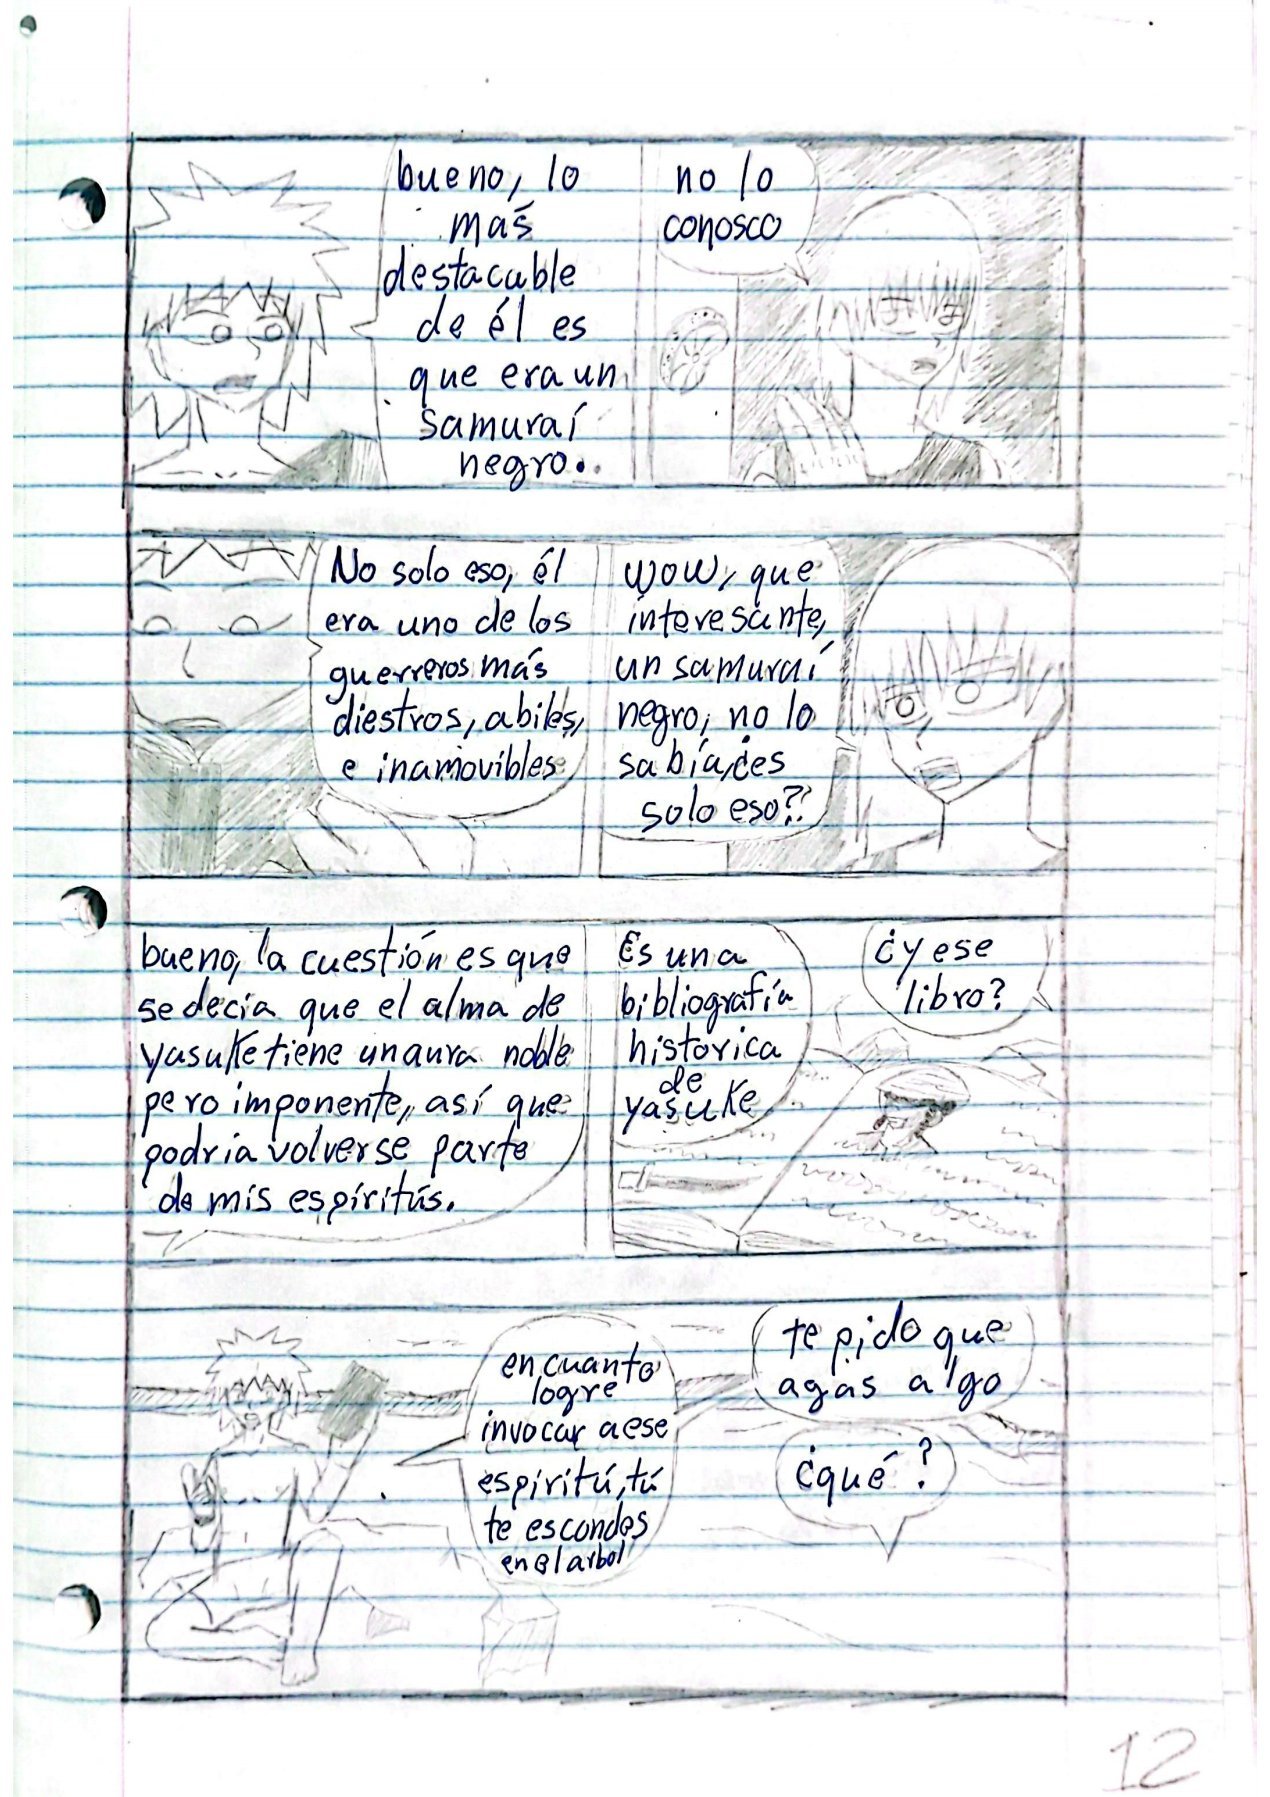 no lo
conosco
bueno, lo
más
destacable
de él es
que era un
samuraí
negro..
wow, que
interesante,
un samuraí
negro, no lo
sabía, ¿es
solo eso?
No solo eso, él
era uno de los
guerreros más
diestros, abiles,
e inamovibles
¿y ese
libro?
Es una
bibliografía
historica
de
yasuke
bueno, la cuestión es que
se decia que el alma de
yasuke tiene un aura noble
pero imponente, así que
podria volverse parte
de mis espíritús.
te pido que
agas algo
¿qué?
en cuanto
logre
invocar a ese
espiritú, tú
te escondes
en el arbol
12